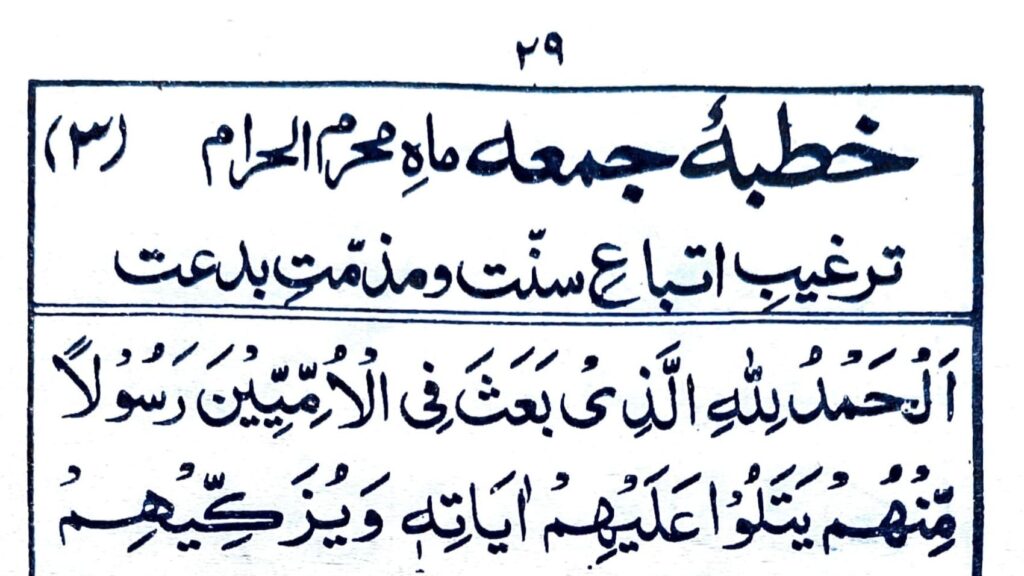 ۲۹
خطبۂ جمعہ ماہِ محرم الحرام (۳)
ترغیبِ اتباعِ سنّت و مذمّتِ بدعت
اَلْحَمْدُ لِلّٰهِ الَّذِیْ بَعَثَ فِی الْاُمِّیِّیْنَ رَسُوْلًا
مِّنْهُمْ یَتْلُوْا عَلَیْهِمْ اٰیَاتِهٖ وَیُزَكِّیْهِمْ